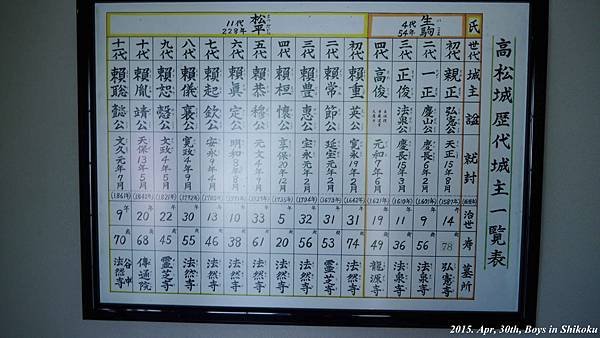 高松城歴代城主一覧表
氏 生駒 4代 54年 松平 11代 228年
世代 初代 二代 三代 四代 初代 二代 三代 四代 五代 六代 七代 八代 九代 十代 十一代
城主 親正 一正 正俊 高俊 頼重 頼常 頼豊 頼桓 頼恭 頼眞 頼起 頼儀 頼恕 頼胤 頼聰
諡 弘憲公 慶山公 法泉公 英公 節公 惠公 懐公 穆公 定公 欽公 襄公 愨公 靖公 懿公
就封 天正15年8月 慶長6年2月 慶長15年3月 元和7年6月 寛永19年2月 延宝元年2月 宝永元年2月 享保20年12月 元文4年9月 明和8年 安永9年4月 寛政4年9月 文政4年5月 天保13年5月 文久元年7月
(1587年) (1601年) (1610年) (1621年) (1642年) (1673年) (1704年) (1735年) (1739年) (1771年) (1780年) (1792年) (1821年) (1842年) (1861年)
治世 14 9 11 19 31 31 32 5 33 10 13 30 22 20 9年
寿 78 56 36 49 74 53 56 20 61 38 46 55 45 68 70歳
墓所 弘憲寺 法泉寺 法泉寺 龍源寺 法然寺 霊芝寺 法然寺 法然寺 法然寺 法然寺 法然寺 法然寺 霊芝寺 傳通院 谷中 法然寺
2015. Apr, 30th, Boys in Shikoku